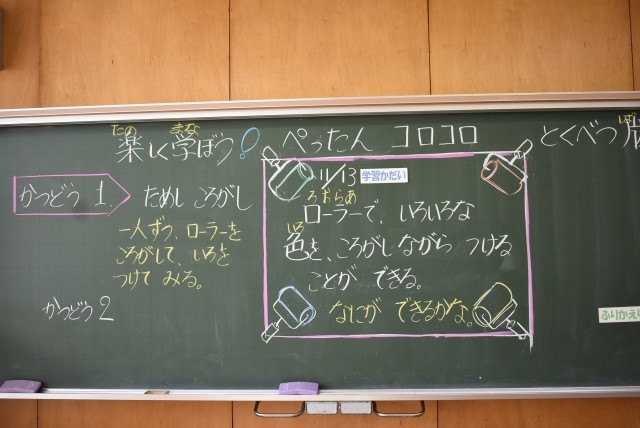 たの まな
楽しく学ぼう! ぺったん コロコロ とくべつ版
かつどう 1
ためし ころがし
一人ずつ、ローラーを
ころがして、いろを
つけて みる。
かつどう 2
11/13 学習かだい
ろおらあ
ローラーで、いろいろな
いろ
色を、ころがしながら つける
ことが できる。
なにが できるかな。
ふりかえり